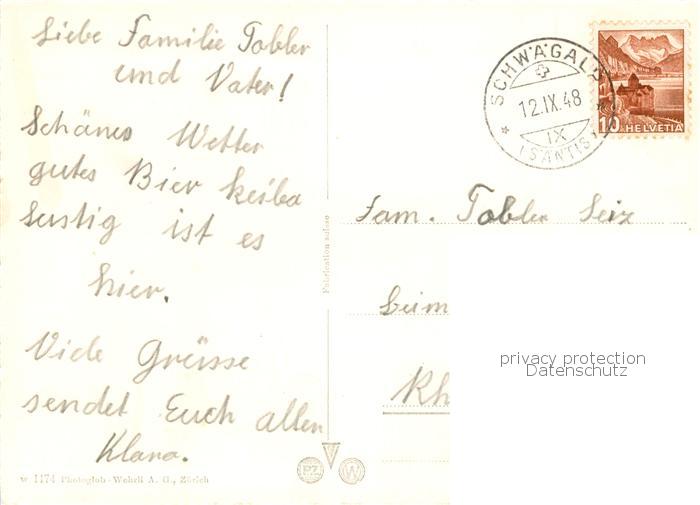 Liebe Familie Tobler
und Vater!
Schönes Wetter
gutes Bier keiba
lustig ist es
hier.
Viele Grüsse
sendet Euch allen
Klara.
W 1174 Photoglob-Wehrli A. G., Zürich
Fabrication suisse
PZ W
SCHWÄGALP
12.IX.48
IX
(SÄNTIS)
10 HELVETIA
Fam. Tobler Seiz
beim
Rh
privacy protection
Datenschutz